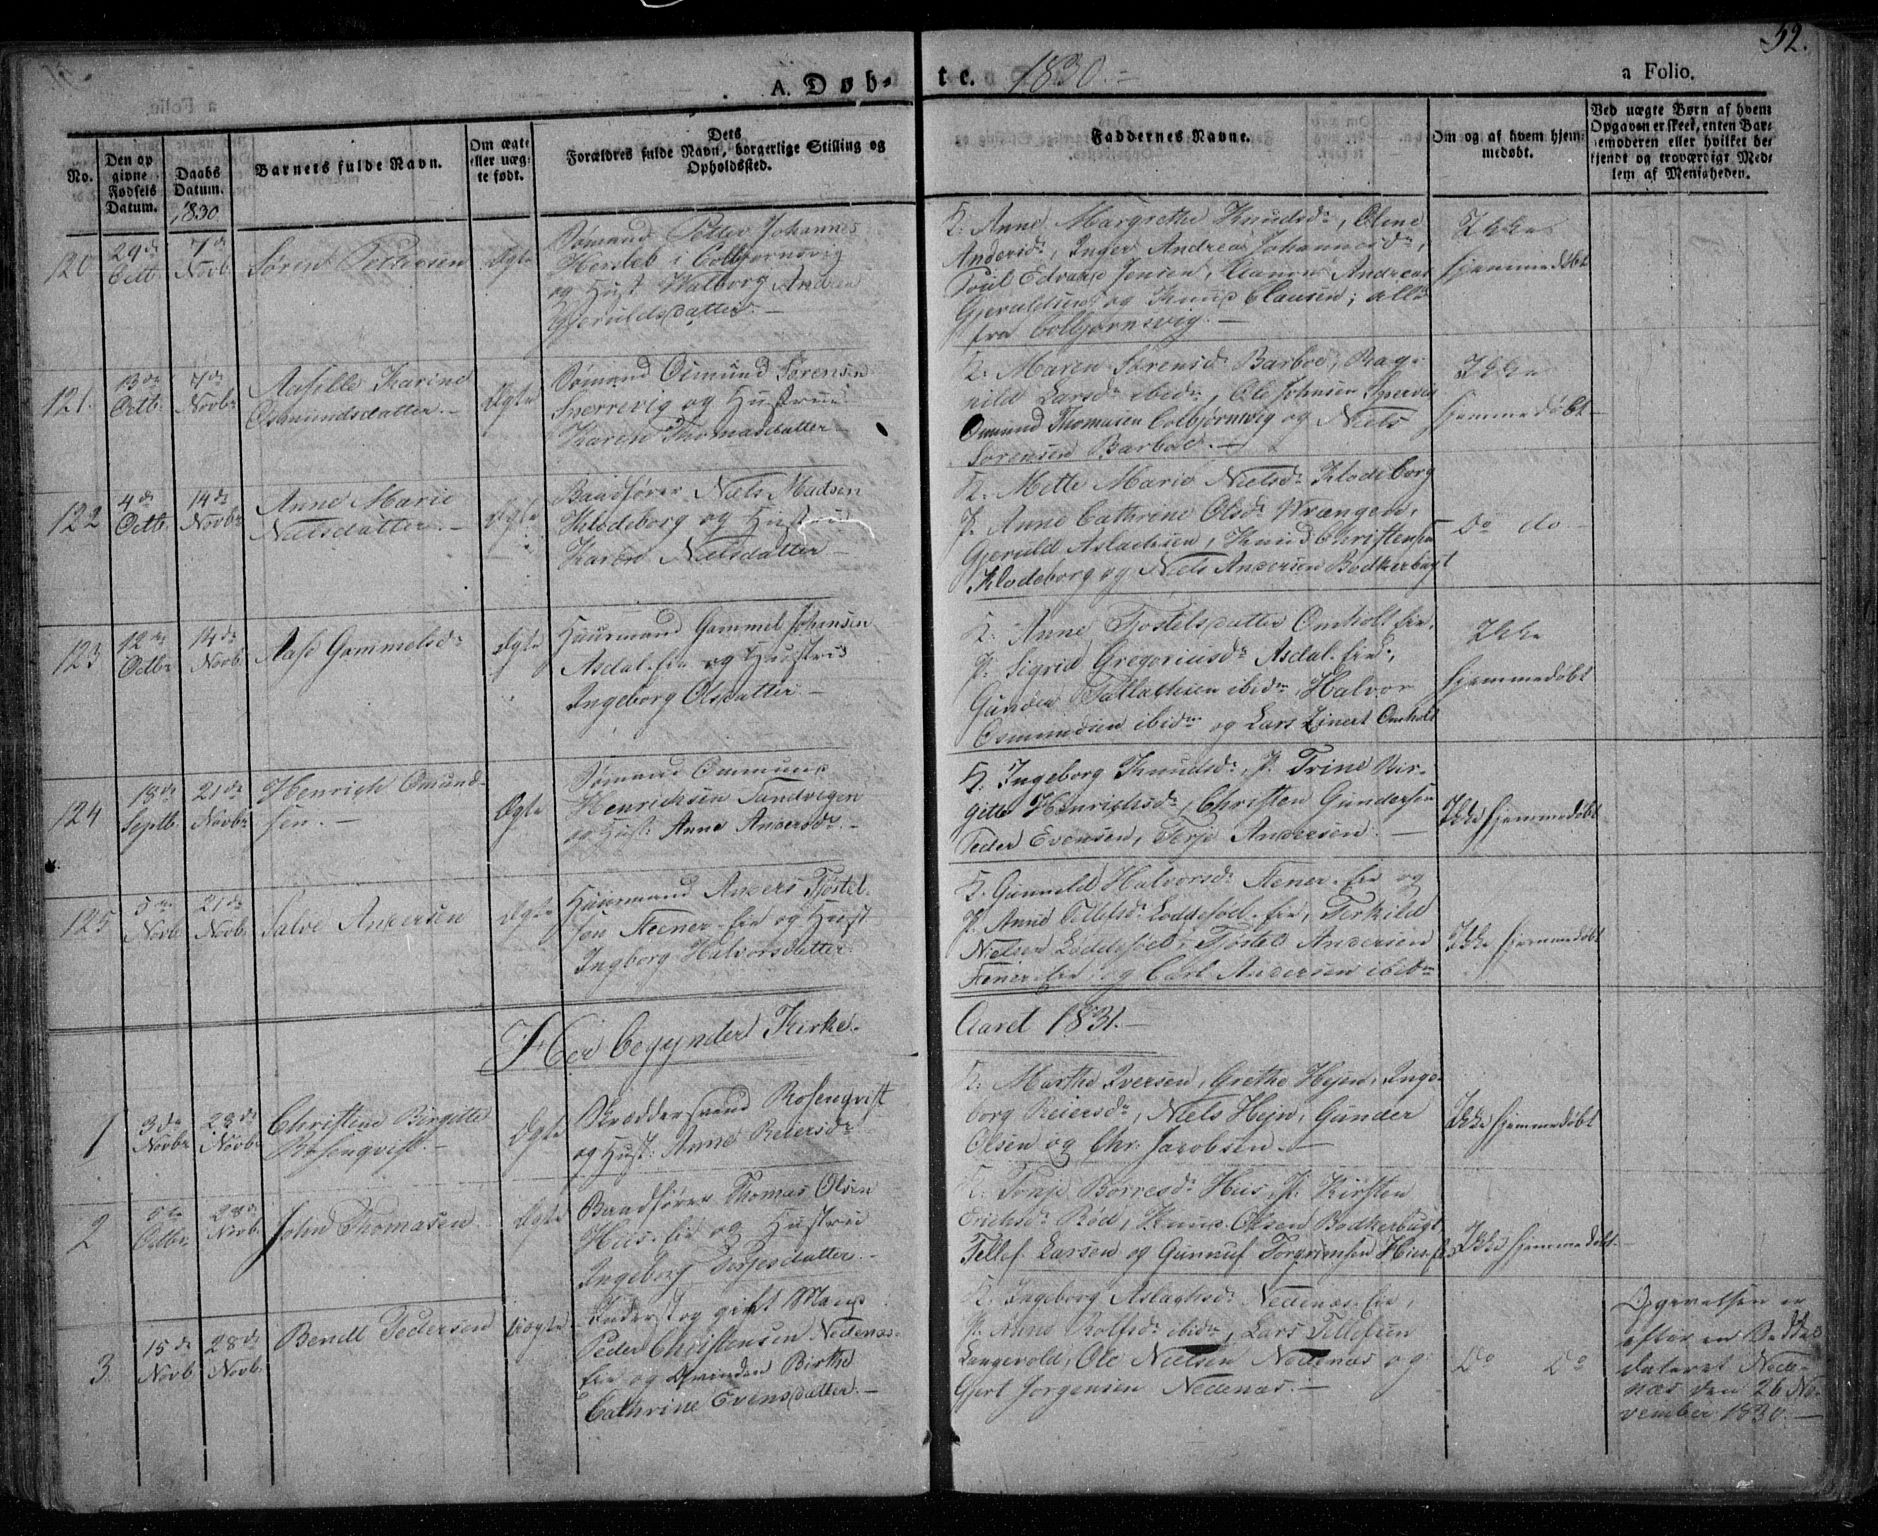 52.
A. Døb-
te. 1830.-
a Folio.
No.
Den op
givne
Fødsels
Datum.
Daabs
Datum.
1830
Barnets fulde Navn.
Om ægte
eller uæg-
te født.
Dets
Forældres fulde Navn, borgerlige Stilling og
Opholdssted.
Faddernes Navne.
Om og af hvem hjem-
medøbt.
Ved uægte Børn af hvem
Opgaven er skeet, enten Bar-
nemoderen eller hvilket be-
kjendt og troværdigt Med-
lem af Menigheden.
120
29de
Octb.
7de
Novb.
Søren Pettersen
Ægte
Sømand Petter Johannes
Hersleb i Colbjørnsvig
og Hust Walborg Andrea
Gjeruldsdatter.-
K. Anne Margrethe Knudsdr, Oline
Andersdr, Inger Andrea Johannesdr,
Poul Edvard Jensen, Aanon Andreas
Gjeruldsen og Knud Clausen; alle
fra Colbjørnsvig.-
Ikke
hjemmedøbt
121.
13de
Octb.
7de
Novbr
Aasille Karine
Osmundsdatter.-
Ægte
Sømand Osmund Sørensen
Sperrevig og Hustrue
Karen Thomasdatter-
K. Maren Sørensdr Barboe, Rag-
nild Larsdr ibidm, Ole Johnsen Spervig
Osmund Thomasen Colbjørnsvig og Niels
Sørensen Barboe.-
Ikke
hjemmedøbt-
122
4de
Octb.
14de
Novbr
Anne Marie
Nielsdatter.-
Ægte
Baadfører Niels Madsen
Klodeborg og Hustrue
Karen Nielsdatter-
K. Mette Marie Nielsdr Klodeborg
P. Anne Cathrine Olsdr Wrængen,
Gjeruld Aslachsen, Knud Christensen
Klodeborg og Niels Andersen Bodkerbugt
Do do-
123
12te
Octbr
14de
Novb.
Aase Gammelsdr
Ægte
Huusmand Gammel Johansen
Asdal-Eie og Hustrue
Ingeborg Olsdatter-
K. Anne Tjostelsdatter Omholt Eie,
P. Sigrid Gregoriusdr Asdal-Eied,
Gunder Tallachsen ibidm, Halvor
Osmundsen ibidm og Lars Einert Omholt
Ikke
hjemmedøbt
124
18de
Septb.
21de
Novbr
Henrich Omund-
sen.-
Ægte
Sømand Ommund
Henrichsen Sandvigen
og Hust: Anne Andersdr.-
K. Ingeborg Knudsdr, P. Trine Bir-
gitte Henrichsdr, Christen Gundersen
Peder Evensen, Terje Andersen.-
Ikke hjemmedøbt
125
5te
Novb.
21de
Novb.
Salve Andersen
Ægte
Huusmand Anders Tjøstel-
sen Stener-Eie og Hust
Ingborg Halvorsdatter
K. Gunnild Halvorsdr Stener-Eie og
P. Anne Tellefsdr Loddesøel-Eie, Terkild
Nielsen Loddesøel, Tjøstel Andersen
Stener-Eie, og Carl Andersen ibidm
Her begynder Kirke-
Aaret 1831.-
1
3de
Novbr
28de
Novbr
Christine Birgitte
Rosenqvist.-
Ægte
Skræddersvend Rosenqvist
og Hust: Anne Reiersdr
K. Marthe Iversen, Grethe Hejn, Inge-
borg Reiersdr, Niels Hejn, Gunder
Olsen og Chr. Jacobsen.-
Ikke hjemmedøbt
2
Octbr
28de
Novb.
John Thomasen
Ægte
Baadfører Thomas Olsen
Huus-Eie og Hustrue
Ingeborg Terjesdatter.-
K. Tonje Børresdr Huus, P. Kirsten
Erichsdr Rød, Knud Olsen Bodkerbugt
Tellef Larsen og Gunnuf Torgrimsen Huus-E.
Ikke hjemmedøbt.
3
15de
Novb.
28de
Novb.
Bendt Pedersen
Uægte
Inderst og gift Mand
Peder Christensen Nedenæs-
Eie og Qvinden Birthe
Cathrine Evensdatter.-
K. Ingeborg Aslachsdr Nedenæs-Eie,
P. Anne Rolfsdr ibidm, Lars Tellefsen
Langevold, Ole Nielsen Nedenæs og
Gjert Jørgensen Nedenæs.-
Do Do
Opgivelsen er
efter en Seddel
dateret Nede-
næs den 26 No-
vember 1830.-